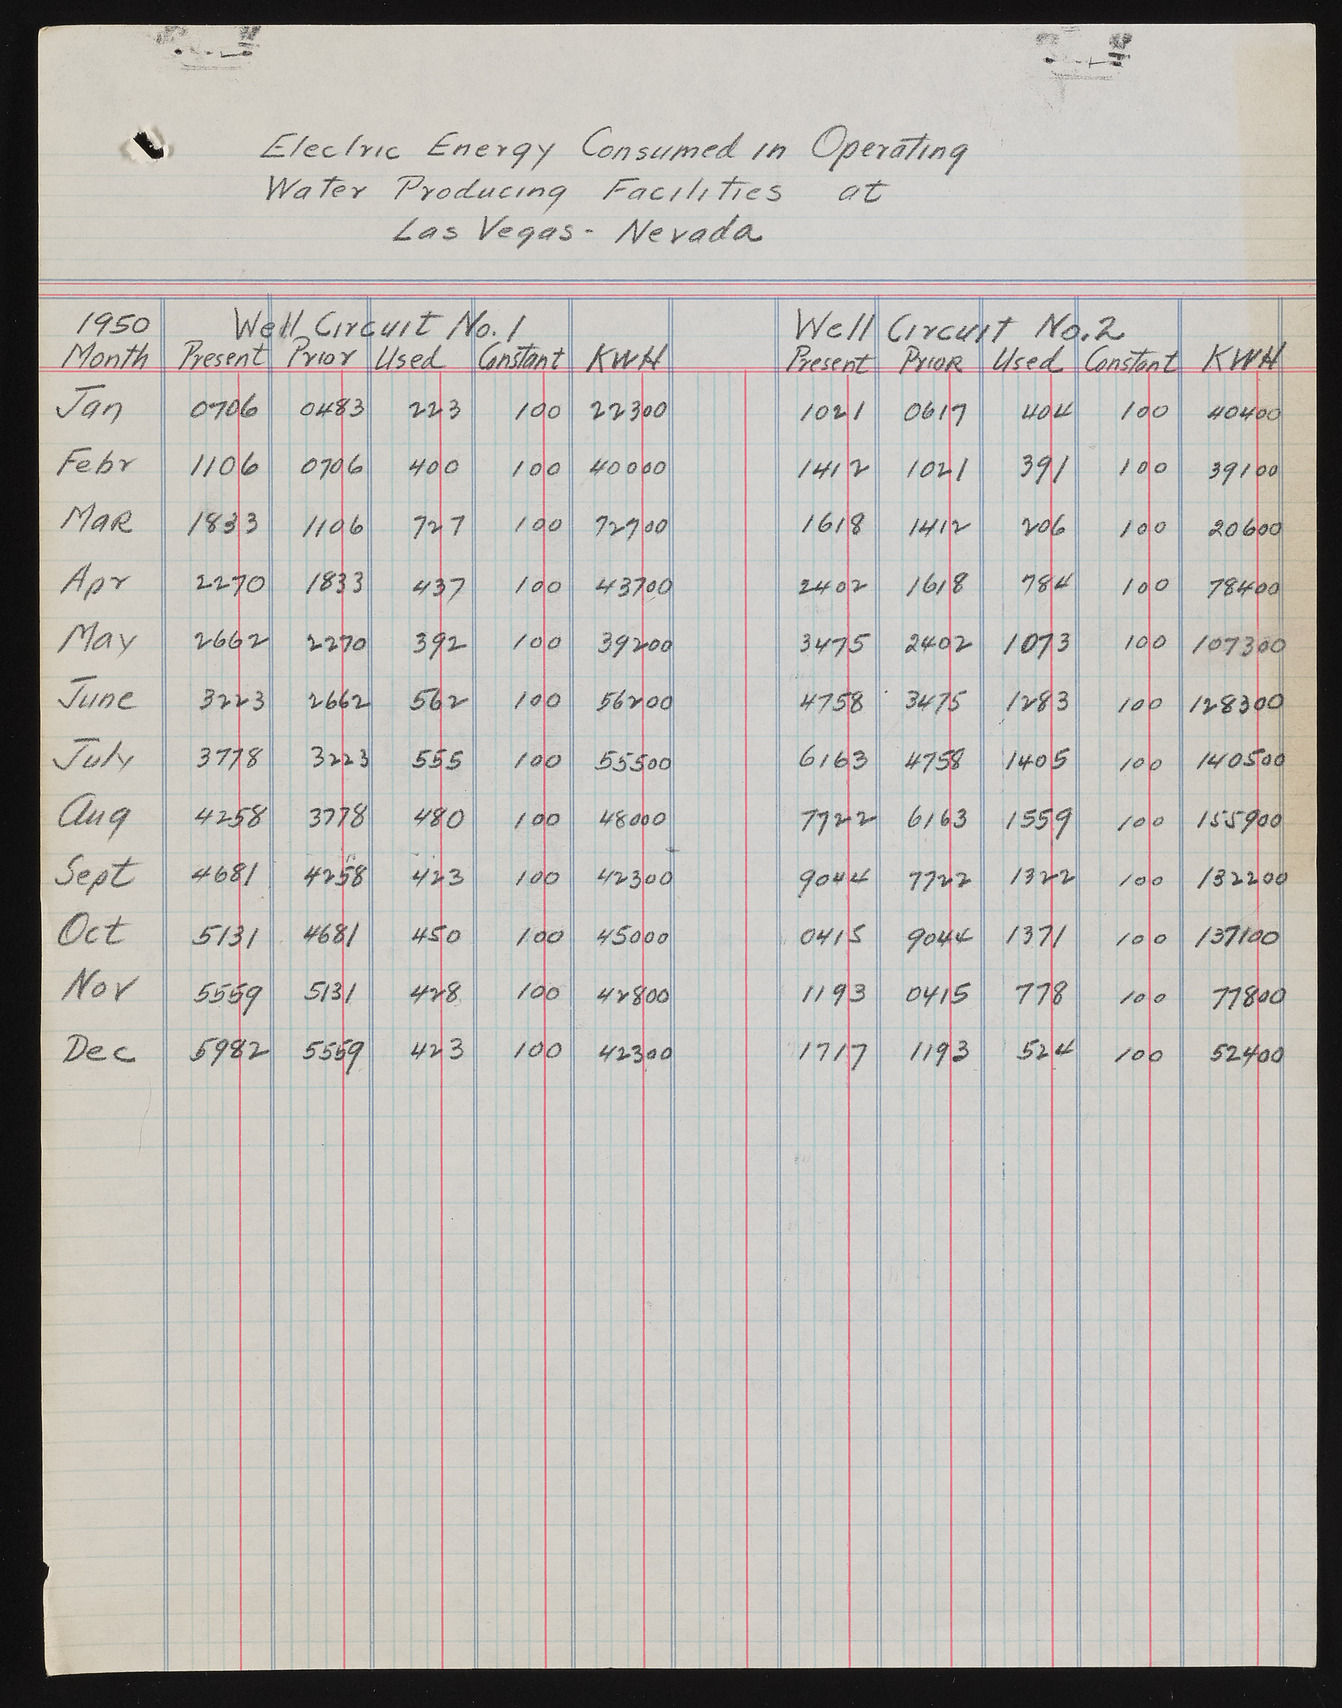 Electric Energy Consumed in Operating
Water Producing Facilities at
Las Vegas - Nevada
1950 Well Circuit No. 1 Well Circuit No. 2
Month Present Prior Used Constant KWH Present Prior Used Constant KWH
Jan 0706 0483 223 100 22300 1021 0617 404 100 40400
Febr 1106 0706 400 100 40000 1412 1021 391 100 39100
Mar 1833 1106 727 100 72700 1618 1412 206 100 20600
Apr 2270 1833 437 100 43700 2402 1618 784 100 78400
May 2662 2270 392 100 39200 3475 2402 1073 100 107300
June 3223 2662 562 100 56200 4758 3475 1283 100 128300
July 3778 3223 555 100 55500 6163 4758 1405 100 140500
Aug 4258 3778 480 100 48000 7722 6163 1559 100 155900
Sept 4681 4258 423 100 42300 9044 7722 1322 100 132200
Oct 5131 4681 450 100 45000 0415 9044 1371 100 137100
Nov 5559 5131 428 100 42800 1193 0415 778 100 77800
Dec 5982 5559 423 100 42300 1717 1193 524 100 52400